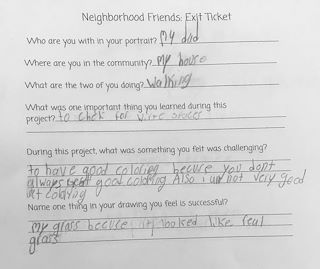 Neighborhood Friends: Exit Ticket
Who are you with in your portrait? My dad
Where are you in the community? My house
What are the two of you doing? Walking
What was one important thing you learned during this
project? to chek for
During this project, what was something you felt was challenging?
to have good coloring becuse you dont
always good coloring Also i am not very good
at coloring
Name one thing in your drawing you feel is successful?
my grass becuse it looked like real
grass